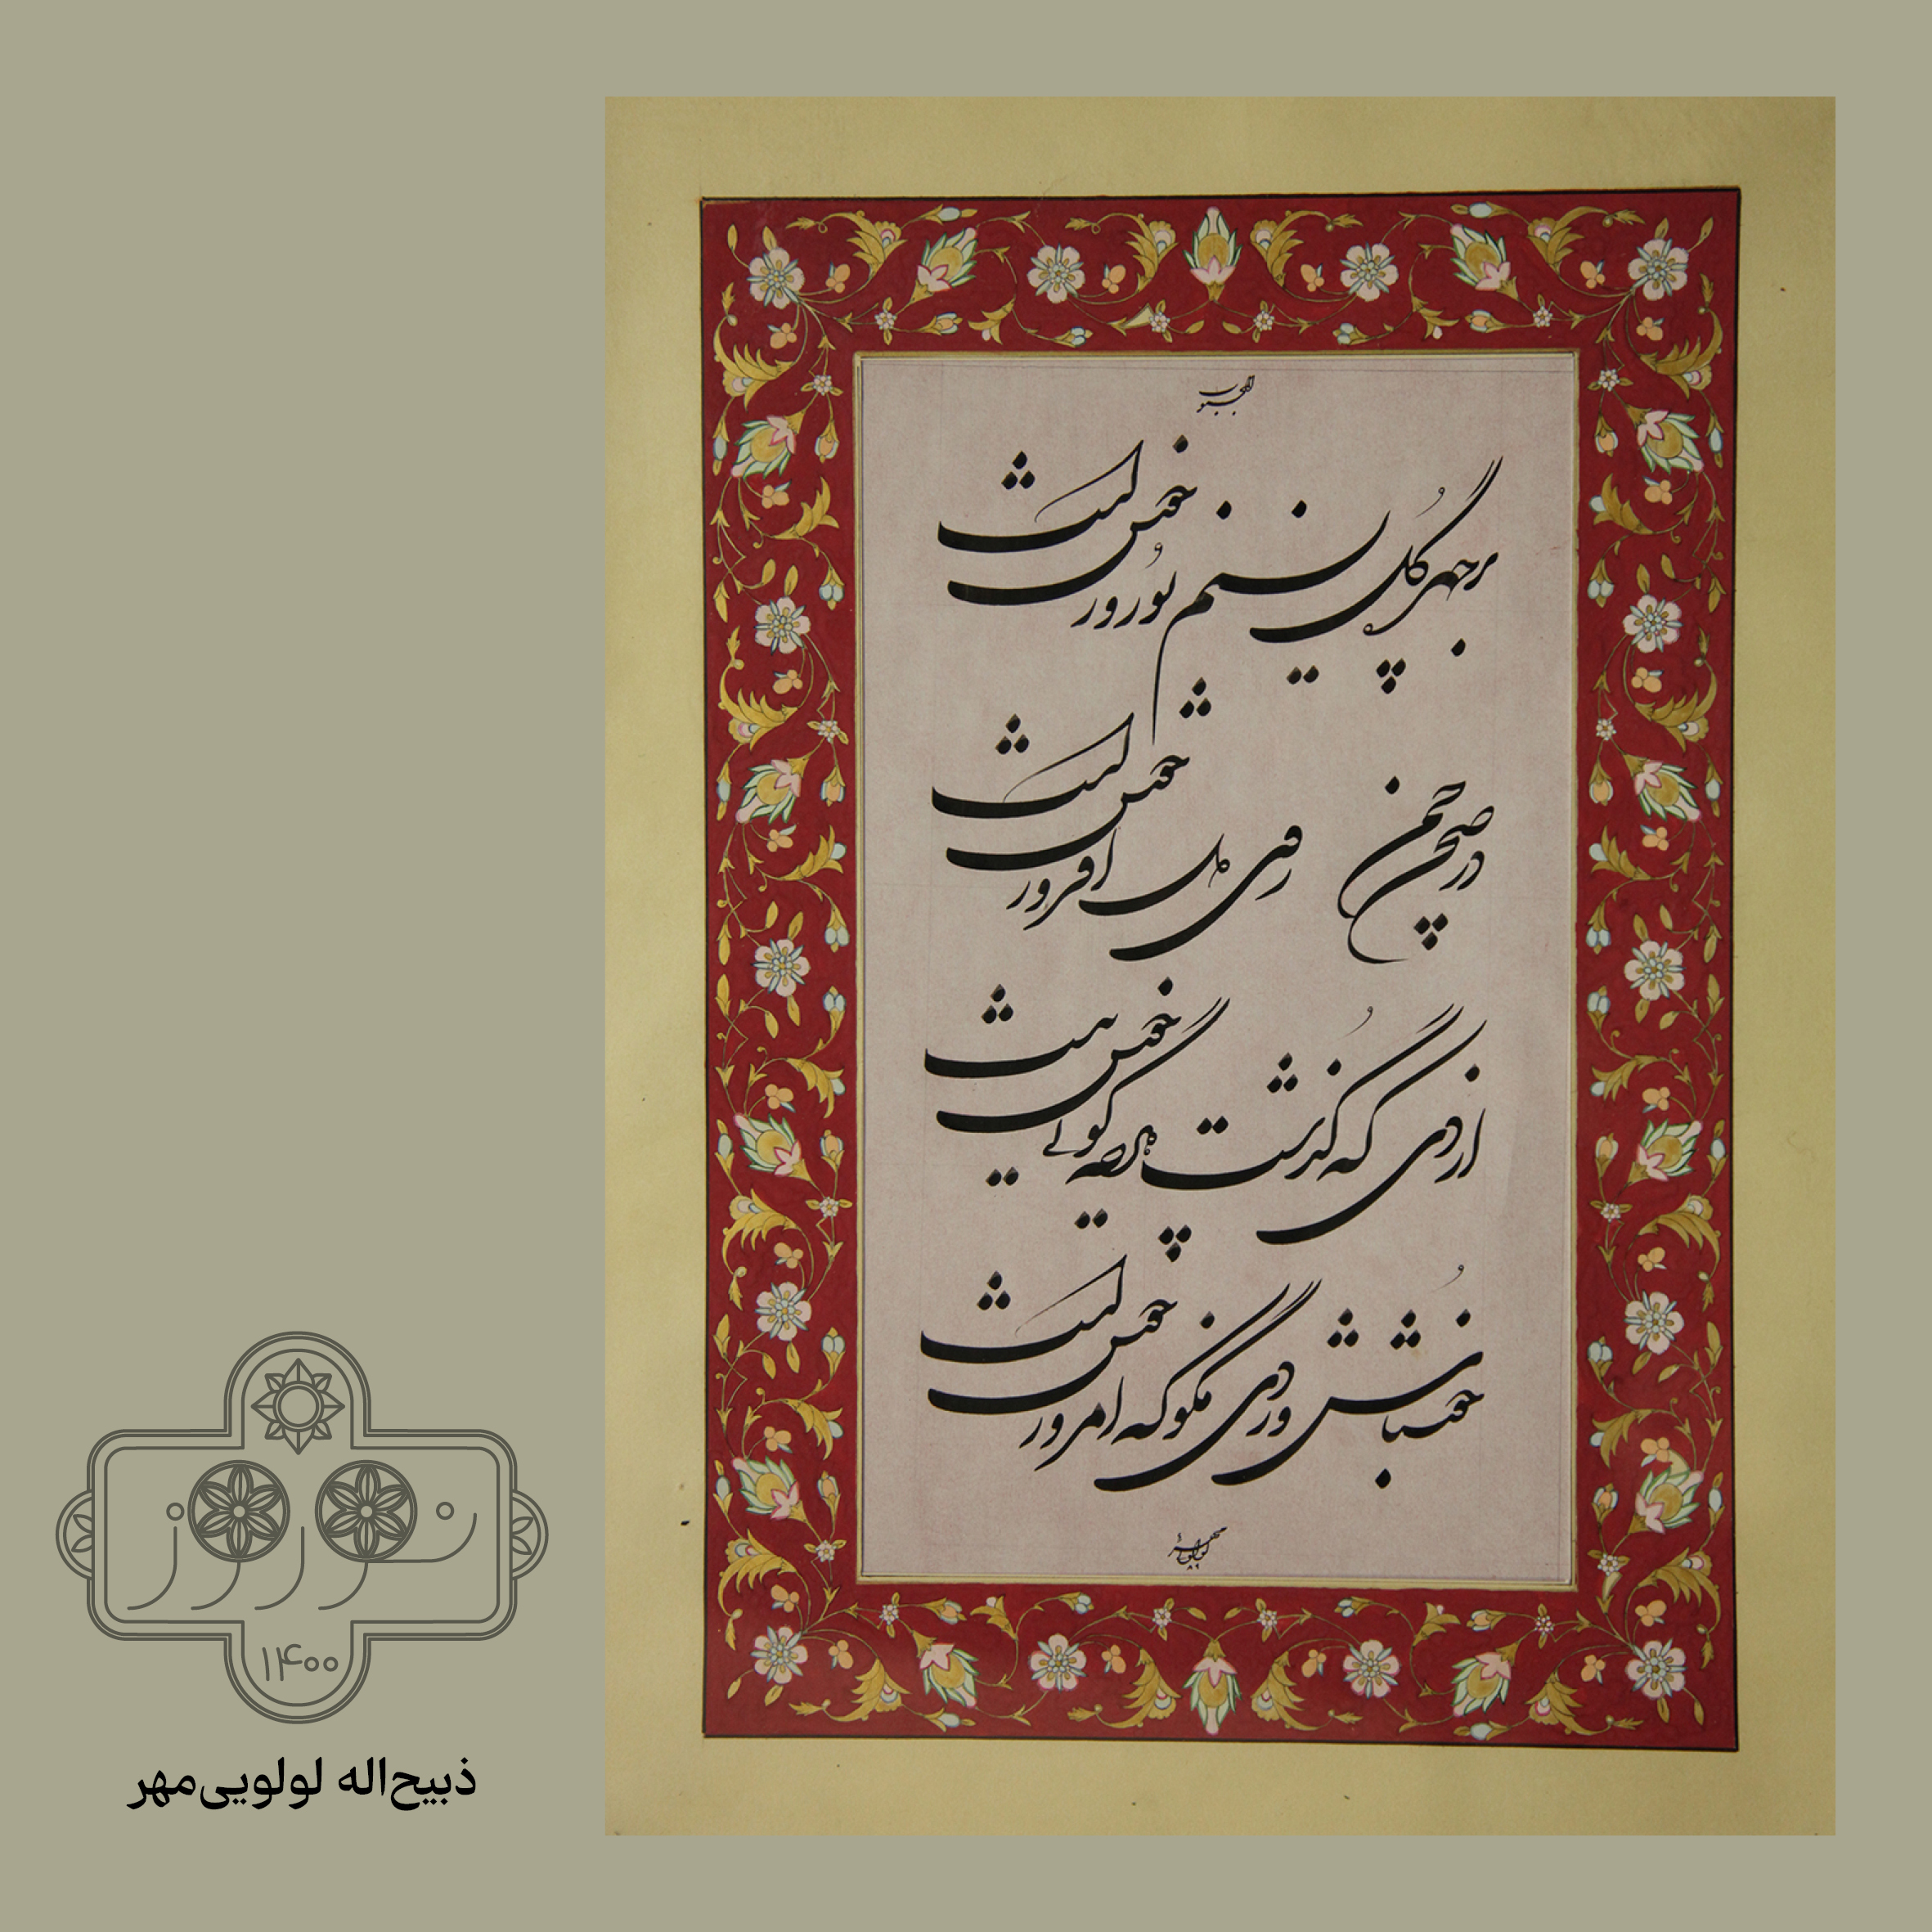 بر چهره گل نسیم نوروز خوش است
در صحن چمن روی دل افروز خوش است
از دی که گذشت هر چه گویی خوش نیست
خوش باش و ز دی مگو که امروز خوش است
نوروز
۱۴۰۰
ذبیح‌اله لولویی‌مهر